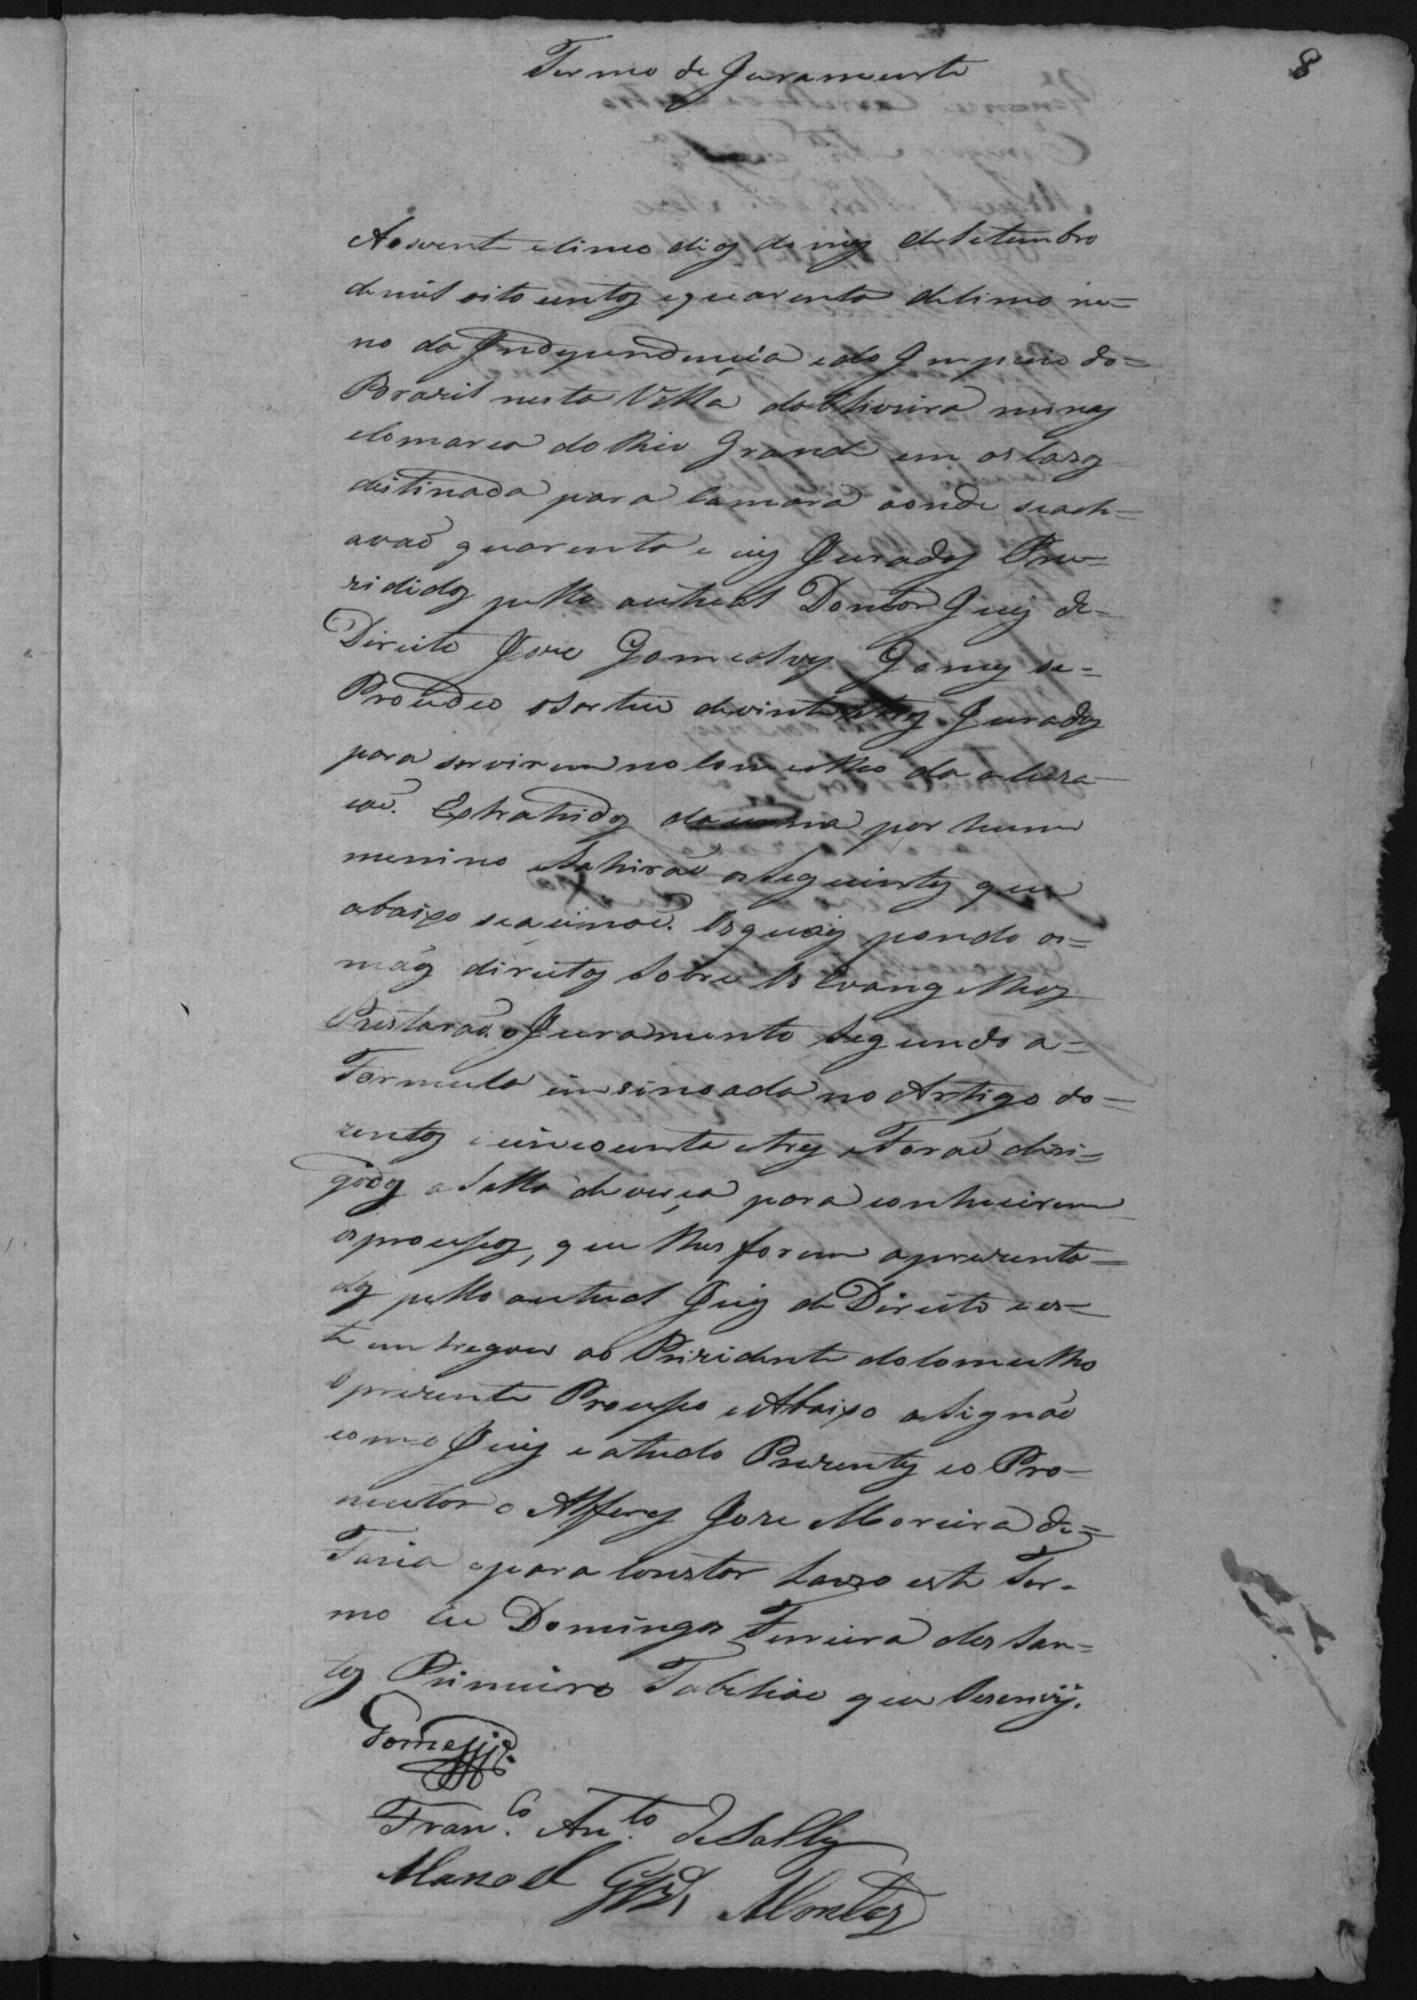 8
Termo de Juramento
Aos vente e sinco dias do mes de Setembro
de mil oito centos e quarenta desimo no=
no da Independencia e do Imperio do=
Brazil nesta Villa da Oliveira minas
e Comarca do Rio Grande em as Cazas
destinada para Camara aonde se ach=
avaõ quarenta e seis Jurados Pre=
zididos pello autual Doutor Juis de=
Direito Joze Gomes
Procedeo o Sorteio de vinte e tres Jurados
para servirem no Comcelho da acuza
caõ. Extrahidos da urna por hum
menino e Sahiraõ os Seguintes que
abaixo se acinaõ. Os quais pondo as=
maõs direitas Sobre Os Evangelhos
Prestaraõ o Juramento Segundo a=
Formula insinoada no Artigo do=
zentos e cincoenta e tres e Foraõ diri=
gidos a Salla para conhecerem
os proceços, que lhes forem aprezenta=
dos pello autual Juis de Direito e es=
te entregou ao Prezidente do Comcelho
o prezente Proceço e Abaixo a Signaõ
com o Juis e a tudo Prezentes eo Pro=
mutor o Alferes Joze Moreira de=
Faria e para Constar Lavro este Ter=
mo Eu Domingos Ferreira dos San=
tos Primeiro Tabeliaõ que Oescrevy.
Gomes
Fran.co An.to de Salles
Manoel Montes